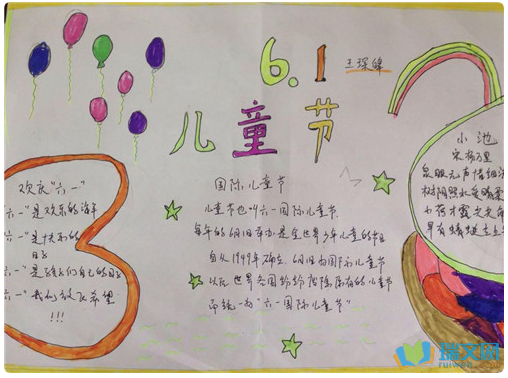 6.1
儿童节
欢庆"六一"
六一"是欢乐的海洋
六一"是快乐的
日子
一"是我们自己的日子
一"我们放飞希望
!!!
国际儿童节
儿童节也叫六一国际儿童节.
每年的6月1日举办是全世界少年儿童的节日
自从1949年确立6月1日为国际儿童节
以后世界各国纷纷废除原有的儿童节
而统一为"六一国际儿童节"
小池
宋 杨万里
泉眼无声惜细流
树阴照水爱晴柔
小荷才露尖尖角
早有蜻蜓立上
瑞文网